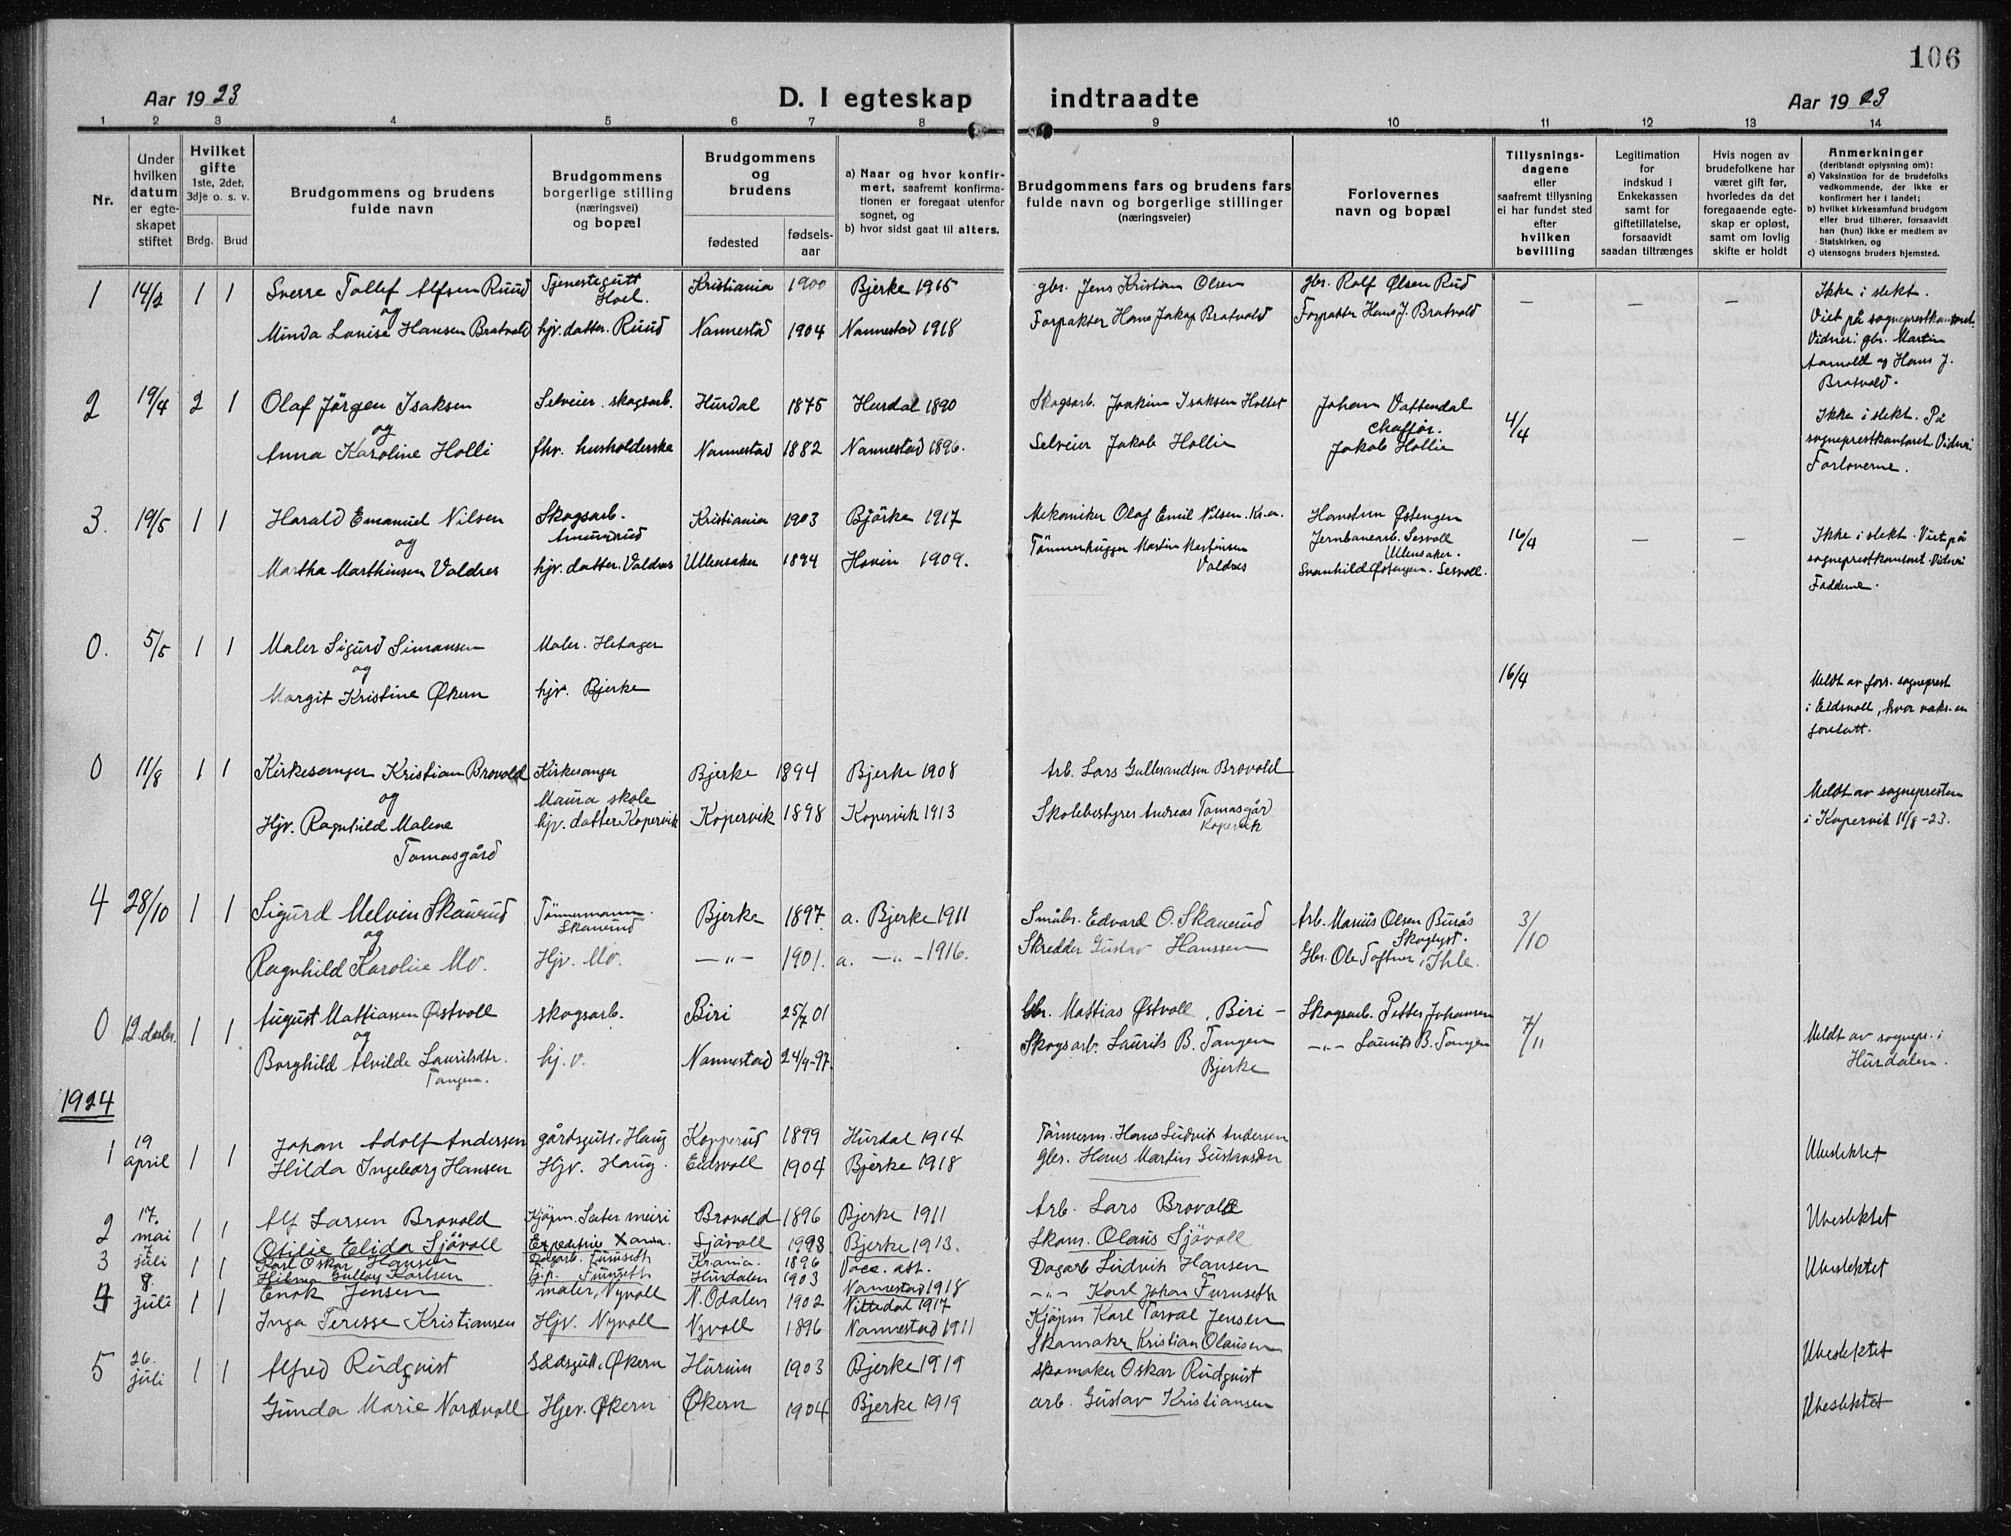 106
Aar 1923 D. I egteskap indtraadte Aar 1923
1 2 3 4 5 6 7 8 9 10 11 12 13 14
Nr.
Under hvilken datum er egteskapet stiftet
Hvilket gifte 1ste, 2det, 3dje o. s. v.
Brdg. Brud
Brudgommens og brudens fulde navn
Brudgommens og brudens borgerlige stilling (næringsvei) og bopæl
Brudgommens og brudens
fødested
fødsels-aar
a) Naar og hvor konfirmert, saafremt konfirmationen er foregaat utenfor sognet, og
b) hvor sidst gaat til alters.
Brudgommens fars og brudens fars fulde navn og borgerlige stillinger (næringsveier)
Forlovernes navn og bopæl
Tillysningsdagene eller saafremt tillysning ei har fundet sted efter hvilken bevilling
Legitimation for indskud i Enkekassen samt for giftetillatelse, forsaavidt saadan tiltrænges
Hvis nogen av brudefolkene har været gift før, hvorledes da det foregaaende egteskap er opløst, samt om lovlig skifte er holdt
Anmerkninger (deriblandt oplysning om):
a) Vaksination for de brudefolks vedkommende, der ikke er konfirmert her i landet;
b) hvilket kirkesamfund brudgom eller brud tilhører, forsaavidt han (hun) ikke er medlem av Statskirken, og
c) utensogns bruders hjemsted.
1 14/2 1 1 Sverre Tollef Alfsen Ruud Tjenestegutt Hoel. Kristiania 1900 Bjerke 1915 gbr. Jens Kristian Olsen gbr. Rolf Olsen Rud – – – Ikke i slekt.
og
Minda Louise Hansen Bratvold hjv. datter. Ruud Nannestad 1904 Nannestad 1918 Forpakter Hans Jakop Bratvold Forpakter Hans J. Bratvold Viet på sogneprestkontoret. Vidner: gbr. Martin Aamodt og Hans J. Bratvold.
2 19/4 2 1 Olaf Jörgen Isaksen Selveier. skogsarb. Hurdal 1875 Hurdal 1890 Skogsarb. Joakim Isaksen Holtet Johan Vattendal chaffør. 4/4 Ikke i slekt. På
og
Anna Karoline Holli fhv. husholderske Nannestad 1882 Nannestad 1896. Selveier Jakob Hollie Jakob Hollie sogneprestkontoret. Vidner: Forloverne.
3. 19/5 1 1 Harald Emanuel Nilsen Skogsarb. Amundrud Kristiania 1903 Bjørke 1917 Mekaniker Olaf Emil Nilsen. Kr.a. Østengen Jernbanearb. Sesvoll Ullensaker. 16/4 – – Ikke i slekt. Viet på
og
Martha Marthinsen Valdres hjv. datter. Valdres Ullensaker 1894 Hovin 1909. Tømmerhugger Martin Martinsen Valdres Svanhild Østengen. Sesvoll. sogneprestkontoret. Vidner: Fadderne.
0. 5/5 1 1 Maler Sigurd Simonsen Maler. Hetager
og
Margit Kristine Økern hjv. Bjerke 16/4 Meldt av sogneprest i Eidsvoll, hvor foretatt.
0 11/8 1 1 Kirkesanger Kristian Brovold Kirkesanger Maura skole Bjerke 1894 Bjerke 1908 Arb. Lars Gulbrandsen Brovold
og
Hjv. Ragnhild Malene Tomasgård hjv. datter Kopervik Kopervik 1898 Kopervik 1913 Skolebestyrer Andreas Tomasgård Kopervik Meldt av sognepresten i Kopervik 11/8-23.
4 28/10 1 1 Sigurd Melvin Skaurud Tømmermann. Skaurud Bjerke 1897. a. Bjerke 1911 Småbr. Edvard O. Skaurud Arb. Marius Olsen Burås Skoglyst. 3/10
og
Ragnhild Karoline Mo. Hjv. Mo. –„– 1901. a. –„– 1916. Skredder Gustav Hanssen Gbr. Ole Toftner, Ihle.
0 12 desbr. 1 1 August Mattiassen Østvoll skogsarb. Biri 25/7 01 Gbr. Mattias Østvoll, Biri – Skogsarb. Petter Johansen 7/11 Meldt av sognepr. i
og
Borghild Alvilde Lauritsdtr. Tangen. hj. v. Nannestad 24/9-97. Skogsarb. Laurits B. Tangen Bjerke –„– Laurits B. Tangen Hurdalen.
1924
1 19 april 1 1 Johan Adolf Andersen gårdsgutt, Haug Kopperud 1899 Hurdal 1914 Tømmerm. Hans Ludvik Andersen
Hilda Ingeborg Hansen Hjv. Haug. Eidsvoll 1904 Bjerke 1918 gbr. Hans Martin Gustavsen Ubeslektet
2 17. mai 1 1 Alf Larsen Brovold Kjøpm. Sæter meiri Brovold 1896 Bjerke 1911 Arb. Lars Brovold
Otilie Elida Sjøvoll Expeditrise Xania. Sjøvoll 1998 Bjerke 1913. Skom. Olaus Sjøvoll Ubeslektet
3 juli 1 1 Karl Oskar Hansen Dagarb. Furuseth Krania. 1896 Vacc. att. Dagarb Ludvik Hansen
Hilma Gulloy Karlsen Furuseth Hurdalen 1903 Nannestad 1918 –„– Karl Johan Furuseth Ubeslektet
4 8 juli 1 1 Enok Jensen maler, Nyvoll N. Odalen 1902 Nittedal 1917 Kjøpm Karl Torval Jensen
Inga Teresse Kristiansen Hjv. Nyvoll Nyvoll 1896 Nannestad 1911 Skomaker Kristian Olausen Ubeslektet
5 26. juli 1 1 Alfred Rudqvist Økern Hurum 1903 Bjerke 1919 skomaker Oskar Rudqvist
Gunda Marie Nordvoll Hjev. Økern Økern 1904 Bjerke 1919 arb. Gustav Kristiansen Ubeslektet